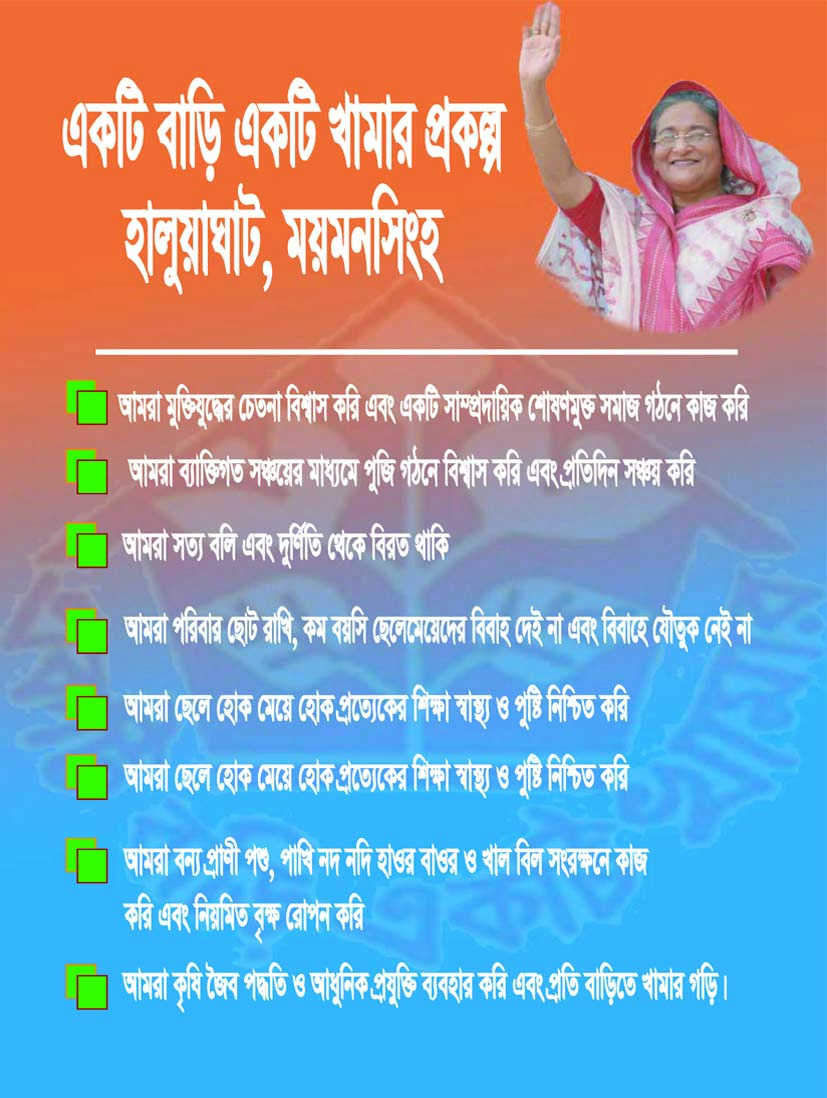 একটি বাড়ি একটি খামার প্রকল্প
হালুয়াঘাট, ময়মনসিংহ
আমরা মুক্তিযুদ্ধের চেতনা বিশ্বাস করি এবং একটি সাম্প্রদায়িক শোষণমুক্ত সমাজ গঠনে কাজ করি
আমরা ব্যাক্তিগত সঞ্চয়ের মাধ্যমে পুজি গঠনে বিশ্বাস করি এবং প্রতিদিন সঞ্চয় করি
আমরা সত্য বলি এবং দুর্ণিতি থেকে বিরত থাকি
আমরা পরিবার ছোট রাখি, কম বয়সি ছেলেমেয়েদের বিবাহ দেই না এবং বিবাহে যৌতুক নেই না
আমরা ছেলে হোক মেয়ে হোক প্রত্যেকের শিক্ষা স্বাস্থ্য ও পুষ্টি নিশ্চিত করি
আমরা ছেলে হোক মেয়ে হোক প্রত্যেকের শিক্ষা স্বাস্থ্য ও পুষ্টি নিশ্চিত করি
আমরা বন্য প্রাণী পশু, পাখি নদ নদি হাওর বাওর ও খাল বিল সংরক্ষনে কাজ
করি এবং নিয়মিত বৃক্ষ রোপন করি
আমরা কৃষি জৈব পদ্ধতি ও আধুনিক প্রযুক্তি ব্যবহার করি এবং প্রতি বাড়িতে খামার গড়ি।